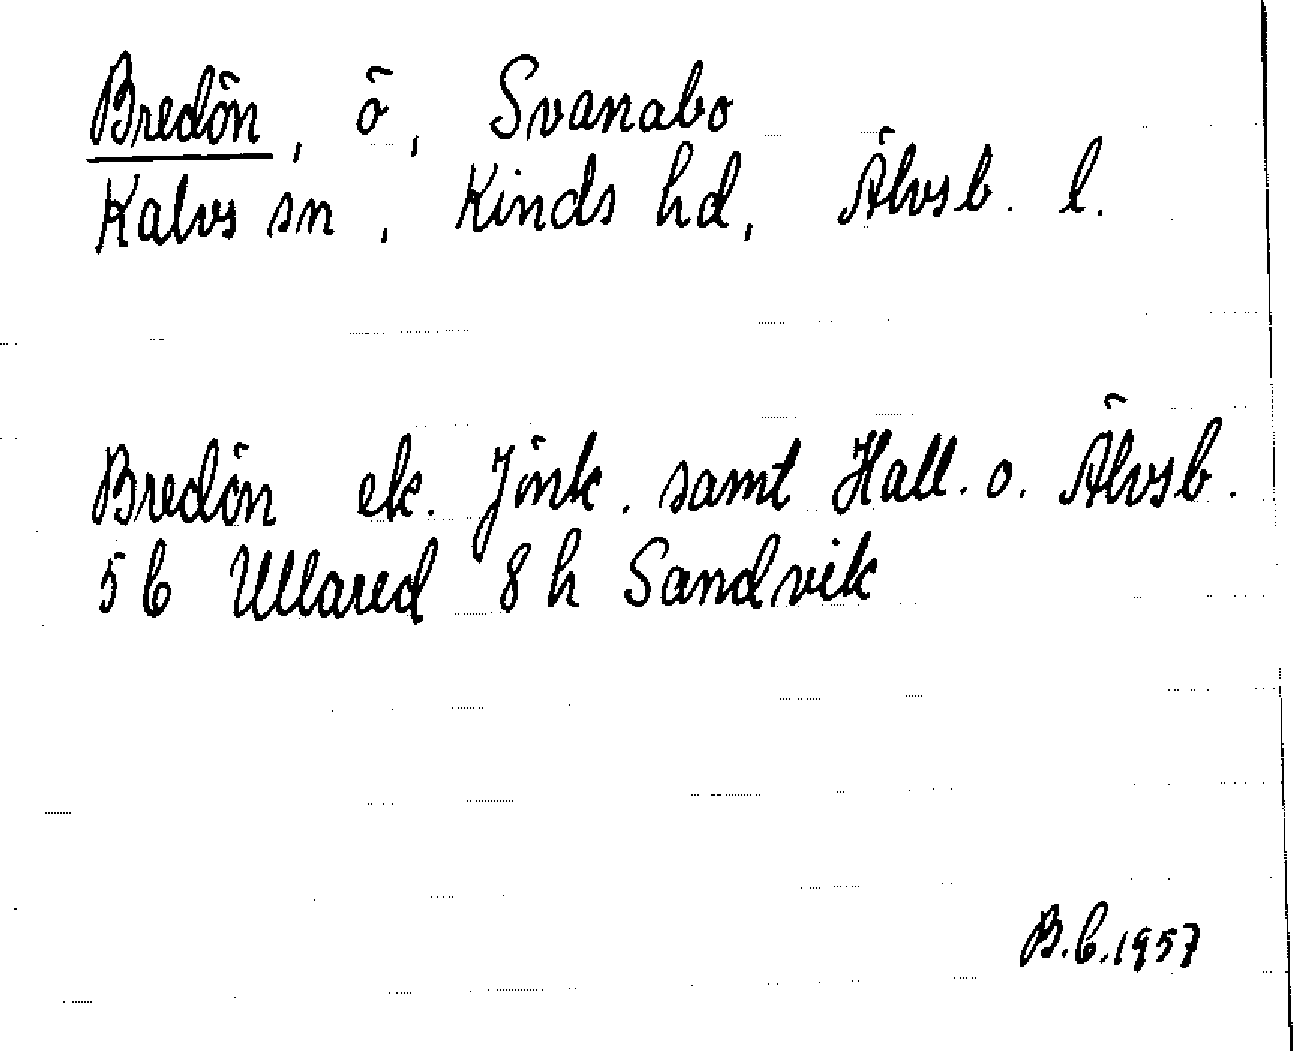 Bredön, ö, Svanabo
Kalvs sn, Kinds hd, Älvsb. l.
Bredön ek. Jönk. samt Hall. o. Älvsb.
5b Ullared 8h Sandvik
B.b.1957